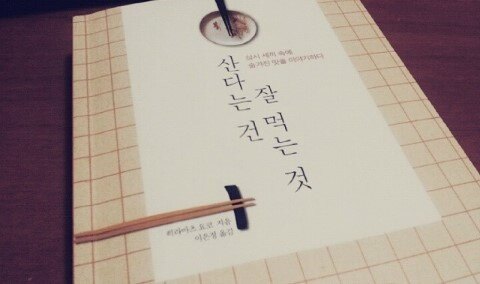 삼시 세끼 속에
숨겨진 맛을 이야기하다
산다는 건
잘 먹는 것
히라마츠 요코 지음
이은정 옮김